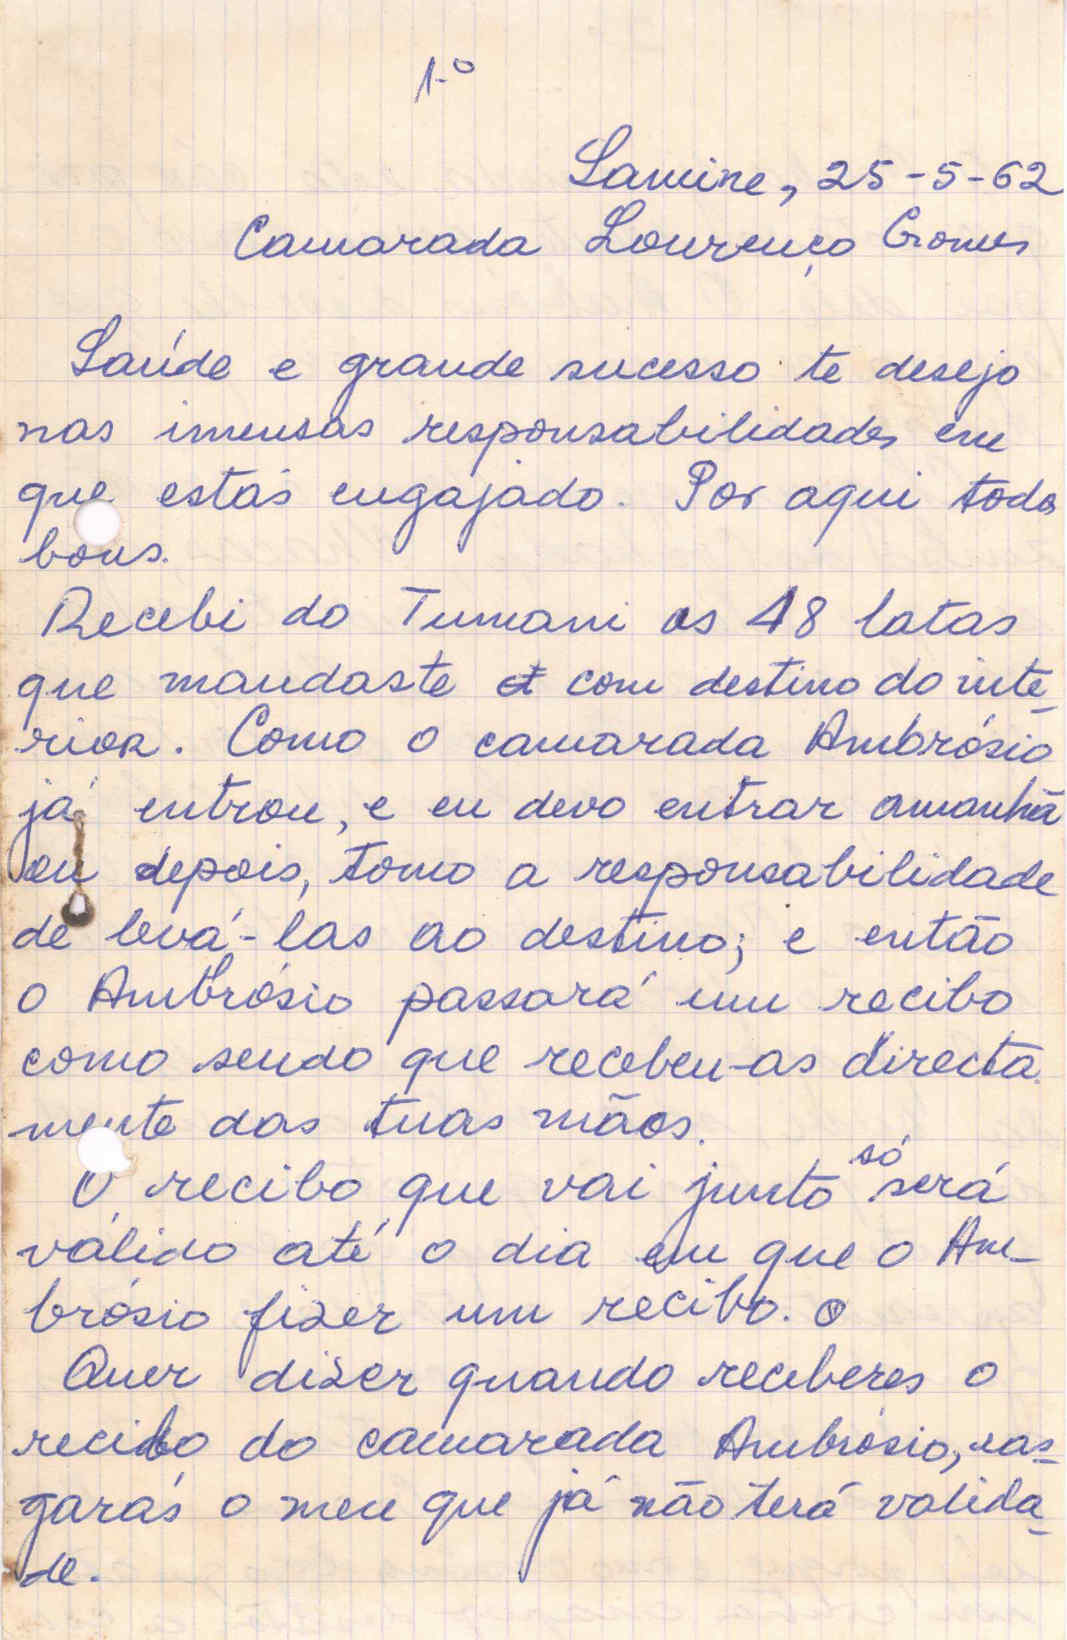 1-º
Samine, 25-5-62
Camarada Lourenço Gomes
Saúde e grande sucesso te desejo
nas imensas responsabilidades em
que estás engajado. Por aqui todos
bons.
Recebi do Tumani as 48 latas
que mandaste com destino do inte-
rior. Como o camarada Ambrósio
já entrou, e eu devo entrar amanhã
ou depois, tomo a responsabilidade
de levá-las ao destino; e então
o Ambrósio passará um recibo
como sendo que recebeu-as directa-
mente das tuas mãos.
O recibo que vai junto só será
válido até o dia em que o Am-
brósio fizer um recibo. o
Quer dizer quando receberes o
recibo do camarada Ambrósio, ras-
garás o meu que já não terá valida-
de.